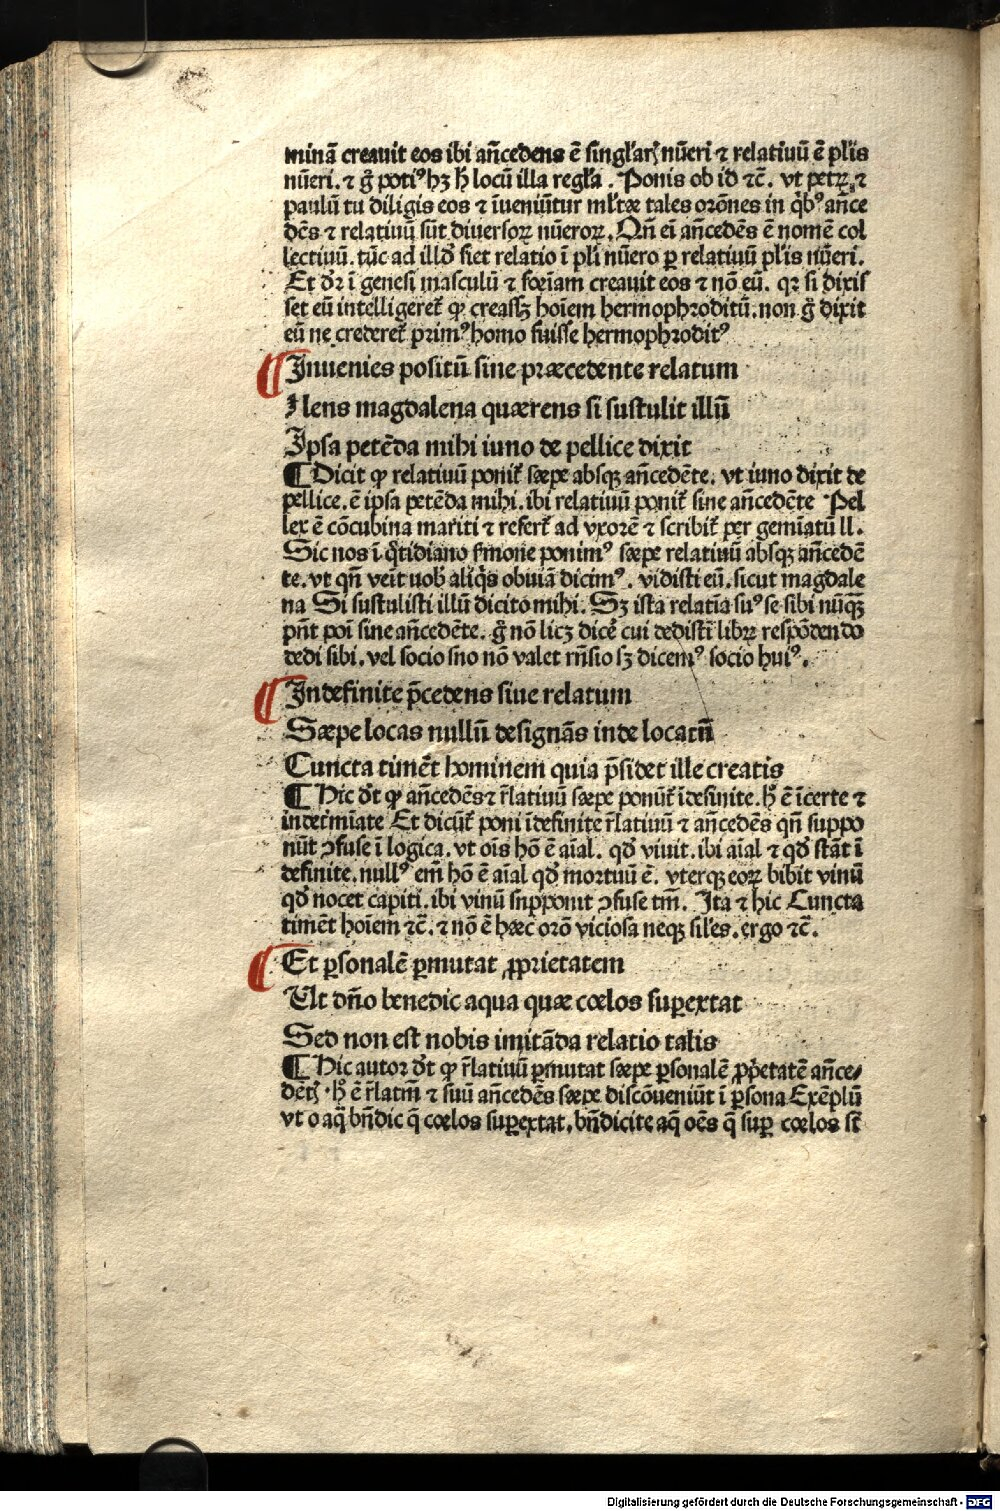 minā creauit eos ibi añcedens ē singl'arꝭ nūeri ⁊ relatiuū ē pl'is
nūeri. ⁊ g̊ poti⁹ hꝫ h̄ locū illa regl'a. Ponis ob id ⁊c̄. vt petrꝝ ⁊
paulū tu diligis eos ⁊ īueniūtur ml'tæ tales orōnes in q̇b⁹ añce
dēs ⁊ relatiuū sūt diuersoꝝ nūeroꝝ. Qñ eī añcedēs ē nomē col
lectiuū. tūc ad illd̄ fiet relatio ī pl'i nūero ꝑ relatiuū pl'is nūeri.
Et d̄r ī genesi masculū ⁊ foeīam creauit eos ⁊ nō eū. qꝛ si dixis
set eū intelligeret̄ ꝙ creassꝫ hoīem hermophroditū. non g̊ dixit
eū ne crederet̄ prim⁹ homo fuisse hermophrodit⁹
¶ Inuenies positū sine præcedente relatum
Flens magdalena quærens si sustulit illū
Ipsa petēda mihi iuno de pellice dixit
¶ Dicit ꝙ relatiuū ponit̄ sæpe absqꝫ añcedēte. vt iuno dixit de
pellice. ē ipsa petēda mihi. ibi relatiuū ponit̄ sine añcedēte Pel
lex ē cōcubina mariti ⁊ refert̄ ad vxorē ⁊ scribit̄ per gemīatū ll.
Sic nos ī q̊tidiano s̄mone ponim⁹ sæpe relatiuū absqꝫ añcedē
te. vt qñ veit uob̄ aliq̇s obuiā dicim⁹. vidisti eū. sicut magdale
na Si sustulisti illū dicito mihi. Sꝫ ista relatīa su⁹ se sibi nūqꝫ
pñt poī sine añcedēte. g̊ nō licꝫ dicē cui dedisti librꝝ respōdendo
dedi sibi. vel socio sno nō valet rñsio sꝫ dicem⁹ socio hui⁹.
¶ Indefinite p̄cedens siue relatum
Sæpe locas nullū designās inde locatū
Cuncta timēt hominem quia p̄sidet ille creatis
¶ Hic d̄t ꝙ añcedēs ⁊ r̄latiuū sæpe ponūt̄ īdefinite. h̄ ē īcerte ⁊
indet̄miate Et dicūt̄ poni īdefinite r̄latiuū ⁊ añcedēs qñ suppo
nūt ꝯfuse ī logica. vt oīs hō ē aīal. qd̄ viuit. ibi aīal ⁊ qd̄ stāt ī
definite. null⁹ em̄ hō ē aīal qd̄ mortuū ē. vterqꝫ eoꝝ bibit vinū
qd̄ nocet capiti. ibi vinū supponit ꝯfuse tm̄. Ita ⁊ hic Cuncta
timēt hoīem ⁊c̄. ⁊ nō ē hæc orō viciosa neqꝫ sil'es. ergo ⁊c̄.
¶ Et ꝑsonalē ꝑmutat ꝓprietatem
Ut dño benedic aqua quæ cœlos suꝑextat
Sed non est nobis imitāda relatio talis
¶ Hic autor d̄t ꝙ r̄latiuū ꝑmutat sæpe ꝑsonalē ꝓp̄etatē añce⸗
dētꝭ. h̄ ē r̄latm̄ ⁊ suū añcedēs sæpe discōueniūt ī ꝑsona Exēplū
vt o aq̄ bñdic q̄ cœlos suꝑextat. bñdicite aq̄ oēs q̄ suꝑ cœlos st̄
Digitalisierung gefördert durch die Deutsche Forschungsgemeinschaft - DFG